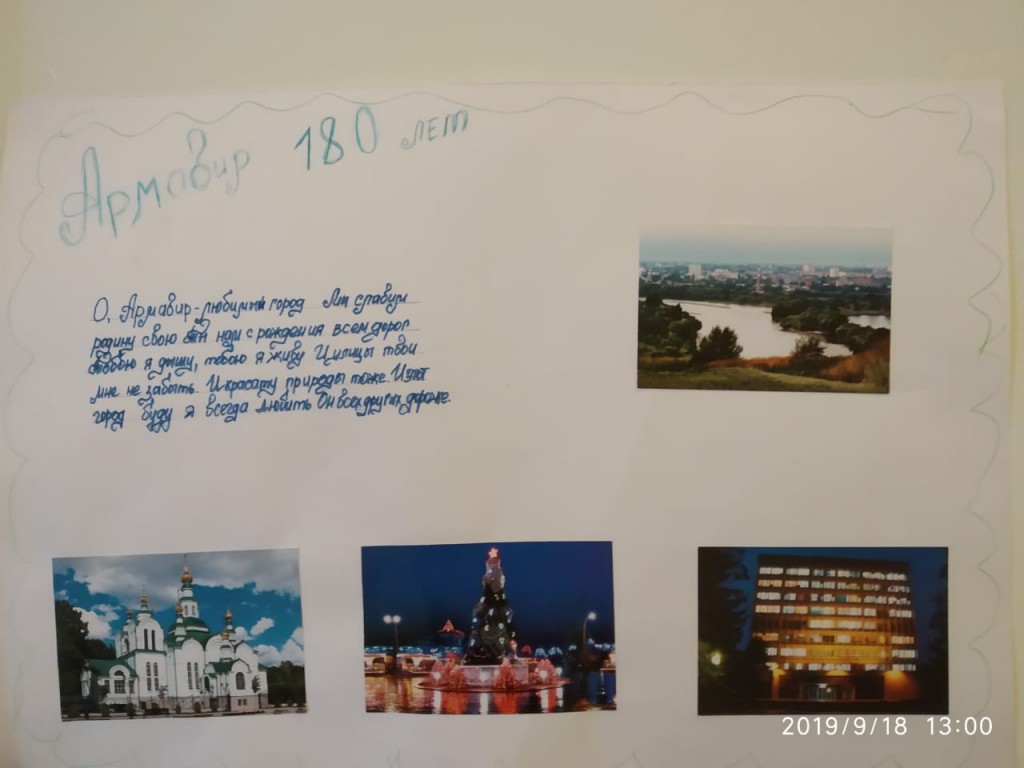 Армавир 180 лет
О, Армавир-любимый город Мы славим
родину свою Ты нам с рождения всем дорог
Тобою я дышу, тобою я живу И улицы твои
мне не забыть И красату природы тоже И этот
город буду я всегда любить Он всех других дороже
2019/9/18 13:00